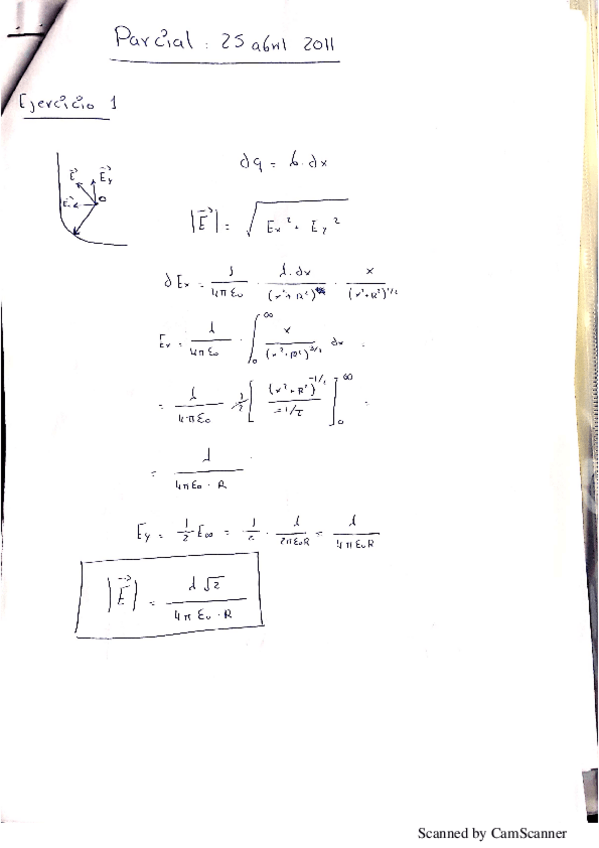 Parcial : 25 abril 2011
Ejercicio 1
E Ey O
dq = λ.dx
|E| = √(Ex² + Ey²)
dEx = 1/(4πε₀) · λ.dx/(x²+R²) · x/(x²+R²)^1/2
Ex = λ/(4πε₀) · ∫₀^∞ x/(x²+R²)^3/2 dx =
= λ/(4πε₀) · 1/2 [(x²+R²)^-1/2 / -1/2]₀^∞ =
= λ/(4πε₀ · R)
Ey = 1/2 E∞ = 1/2 · λ/(2πε₀R) = λ/(4πε₀R)
|E| = λ√2/(4πε₀ · R)
Scanned by CamScanner